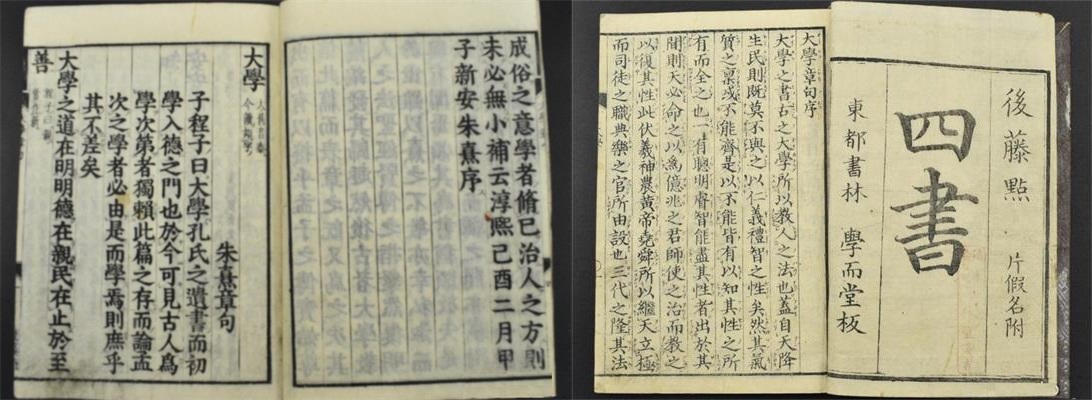 成俗之意學者脩已治人之方則
未必無小補云淳熙己酉二月甲
子新安朱熹序
大學
朱熹章句
子程子曰大學孔氏之遺書而初
學入德之門也於今可見古人爲
學次第者獨賴此篇之存而論孟
次之學者必由是而學焉則庶乎
其不差矣
大學之道在明明德在親民在止於至
善
後藤點 片假名附
四書
東都書林 學而堂板
大學章句序
大學之書古之大學所以教人之法也蓋自天降
生民則既莫不與之以仁義禮智之性矣然其氣
質之稟或不能齊是以不能皆有以知其性之所
有而全之也一有聰明睿智能盡其性者出於其
間則天必命之以爲億兆之君師使之治而教之
以復其性此伏羲神農黃帝堯舜所以繼天立極
而司徒之職典樂之官所由設也三代之隆其法